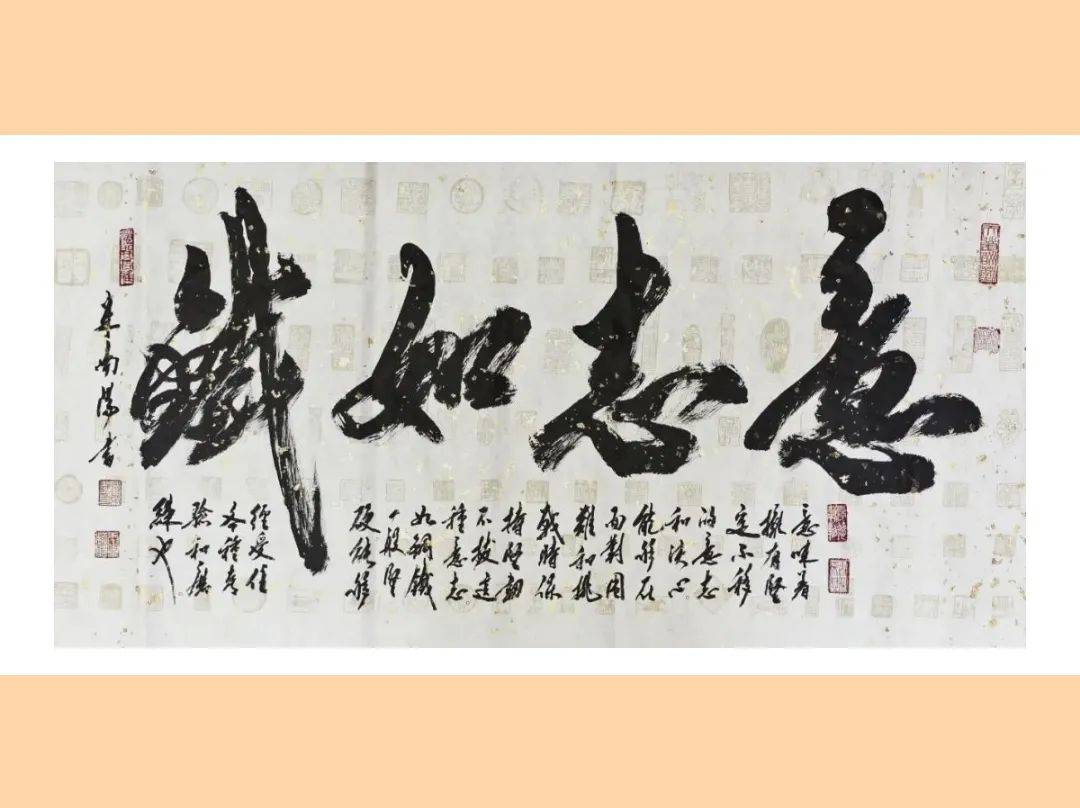 意志如鐵
意味着
擁有堅
定不移
的意志
和決心
能够在
面對困
難和挑
戰時保
持堅韌
不拔這
種意志
如鋼鐵
一般堅
硬能够
經受住
各種考
驗和磨
練也
南陽書